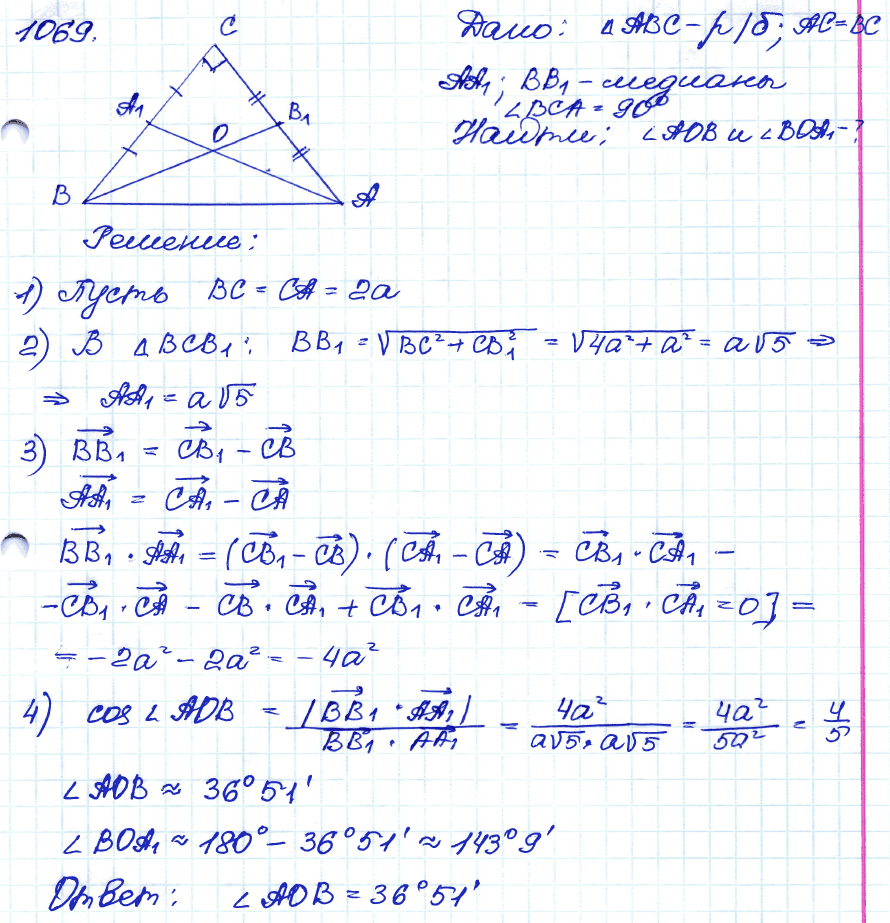 1069.
C
A₁
B₁
O
B
A
Дано: △ABC – р/б; AC=BC
AA₁; BB₁ – медианы
∠BCA = 90°
Найти: ∠AOB и ∠BOA₁–?
Решение:
1) Пусть BC = CA = 2a
2) В △BCB₁: BB₁ = √(BC² + CB₁²) = √(4a² + a²) = a√5 ⇒
⇒ AA₁ = a√5
3) →BB₁ = →CB₁ – →CB
→AA₁ = →CA₁ – →CA
→BB₁ · →AA₁ = (→CB₁ – →CB) · (→CA₁ – →CA) = →CB₁ · →CA₁ –
–→CB₁ · →CA – →CB · →CA₁ + →CB₁ · →CA₁ = [→CB₁ · →CA₁ = 0] =
= – 2a² – 2a² = – 4a²
4) cos ∠AOB = |→BB₁ · →AA₁| / →BB₁ · →AA₁ = 4a² / a√5 · a√5 = 4a² / 5a² = 4/5
∠AOB ≈ 36°51'
∠BOA₁ ≈ 180° – 36°51' ≈ 143°9'
Ответ: ∠AOB = 36°51'